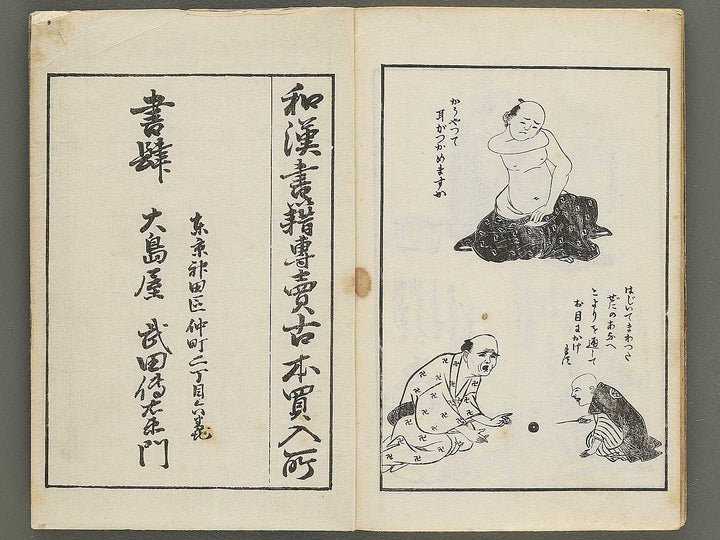 かうやつて
耳がつかめますか
はじいてまわつた
ぜにのあなへ
こよりを通して
お目にかけ
ます
和漢書籍専賣古本買入所
東京神田區仲町二丁目六番地
書肆
大島屋 武田傳右衛門